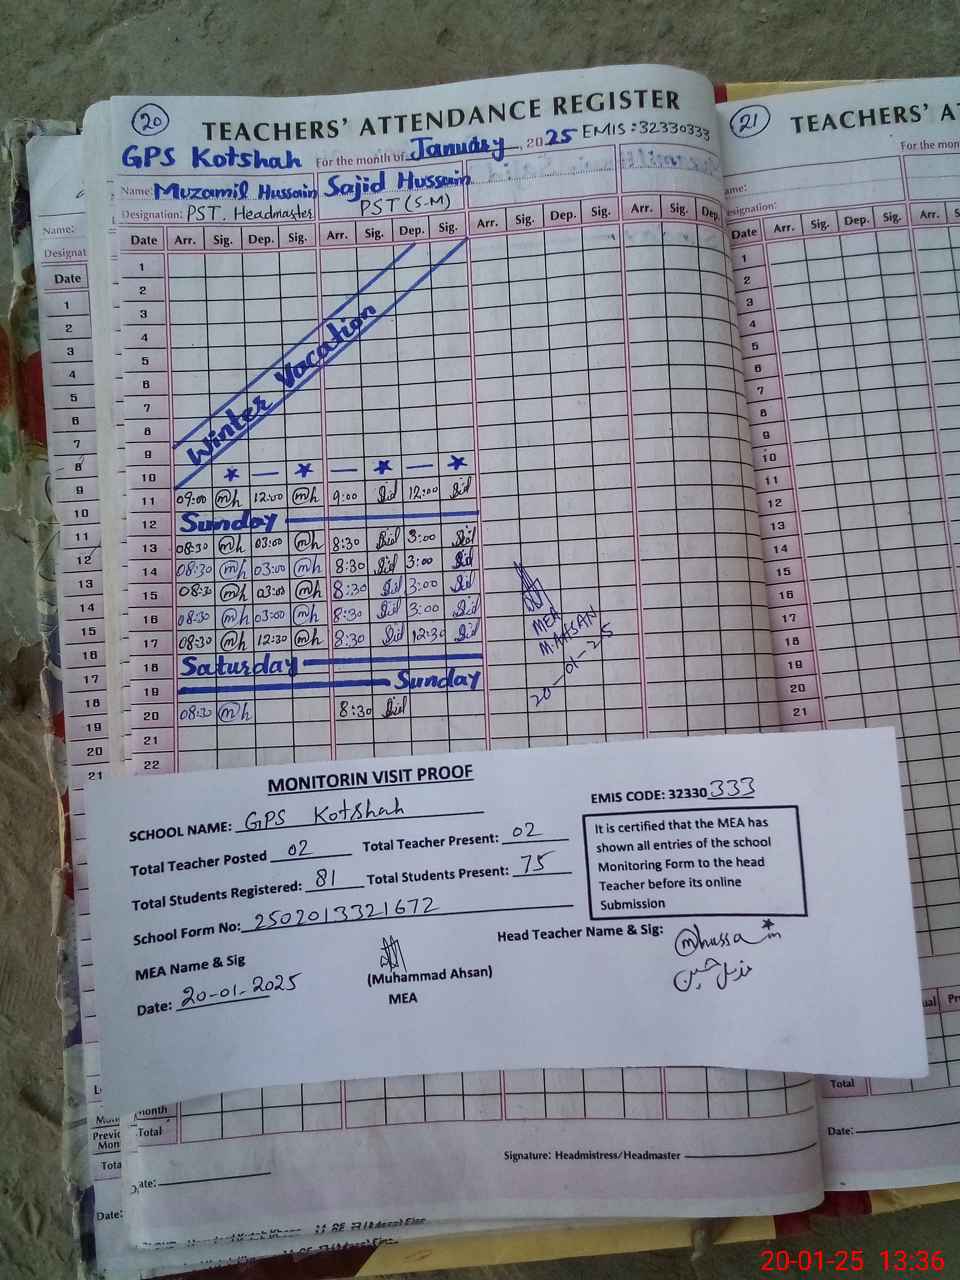 20
TEACHERS' ATTENDANCE REGISTER
GPS Kotshah For the month of January, 2025 EMIS:32330333
Name: Muzamil Hussain Sajid Hussain
Designation: PST, Headmaster PST (S-M)
Date Arr. Sig. Dep. Sig. Arr. Sig. Dep. Sig. Arr. Sig. Dep. Sig. Arr. Sig. Dep.
1
2
3
4
5
6
7
8
9
Winter Vacation
10 * — * — * — *
11 09:00 mh 12:00 mh 9:00 12:00
12 Sunday
13 08:30 mh 03:00 mh 8:30 3:00
14 08:30 mh 03:00 mh 8:30 3:00
15 08:30 mh 03:00 mh 8:30 3:00
16 08:30 mh 03:00 mh 8:30 3:00
17 08:30 mh 12:30 mh 8:30 12:30
18 Saturday
19 Sunday
20 08:30 mh 8:30
21
22
MEA
M.AHSAN
20-01-25
MONITORIN VISIT PROOF
SCHOOL NAME: GPS Kotshah
EMIS CODE: 32330333
Total Teacher Posted 02 Total Teacher Present: 02
Total Students Registered: 81 Total Students Present: 75
School Form No: 2502013321672
It is certified that the MEA has
shown all entries of the school
Monitoring Form to the head
Teacher before its online
Submission
MEA Name & Sig
(Muhammad Ahsan)
MEA
Head Teacher Name & Sig: mhussain
Date: 20-01-2025
Total
Signature: Headmistress/Headmaster
ate:
21
TEACHERS' A
For the mon
ame:
esignation:
Date Arr. Sig. Dep. Sig. Arr. S
1
2
3
4
5
6
7
8
9
10
11
12
13
14
15
16
17
18
19
20
21
Total
Date:
Name:
Designat
Date
1
2
3
4
5
6
7
8
9
10
11
12
13
14
15
16
17
18
19
20
21
Previo
Mon
Tota
Date:
20-01-25 13:36